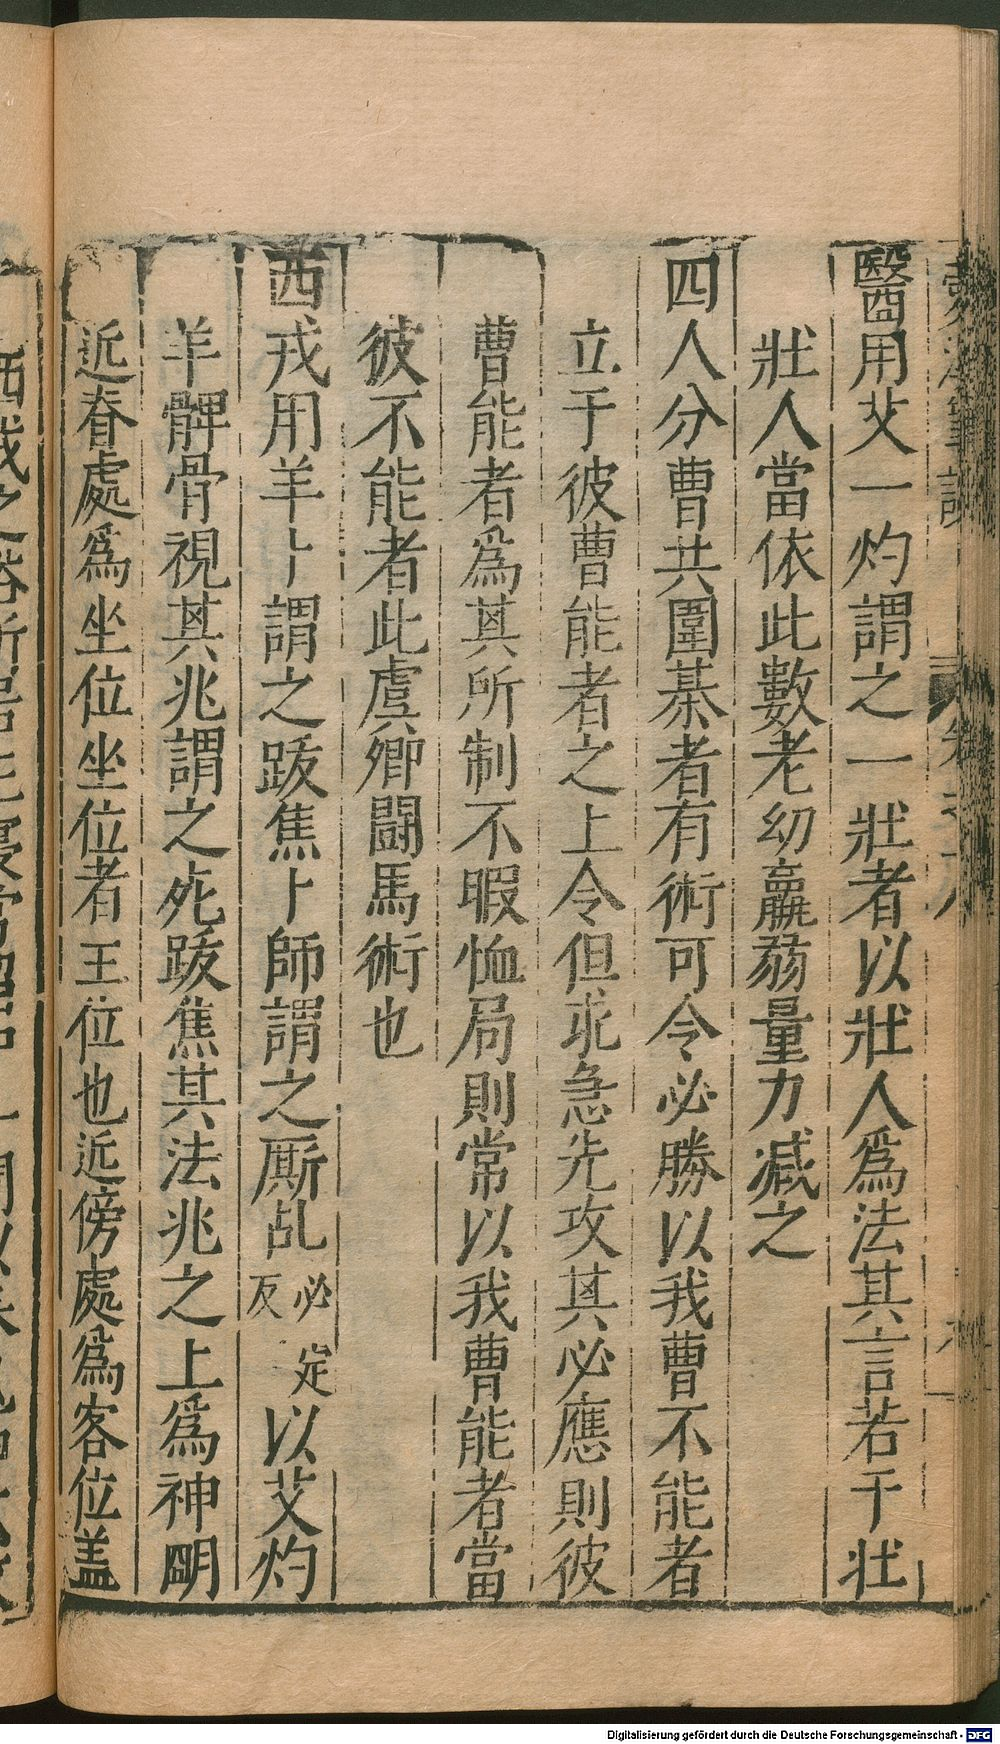 醫用艾一灼謂之一壯者以壯人爲法其言若干壯
壯人當依此數老幼羸弱量力減之
四人分曹共圍棊者有術可令必勝以我曹不能者
立于彼曹能者之上令但求急先攻其必應則彼
曹能者爲其所制不暇恤局則常以我曹能者當
彼不能者此虞卿鬭馬術也
西戎用羊卜謂之跋焦卜師謂之厮乩必定反以艾灼
羊髀骨視其兆謂之死跋焦其法兆之上爲神明
近脊處爲坐位坐位者王位也近傍處爲客位盖
Digitalisierung gefördert durch die Deutsche Forschungsgemeinschaft - DFG